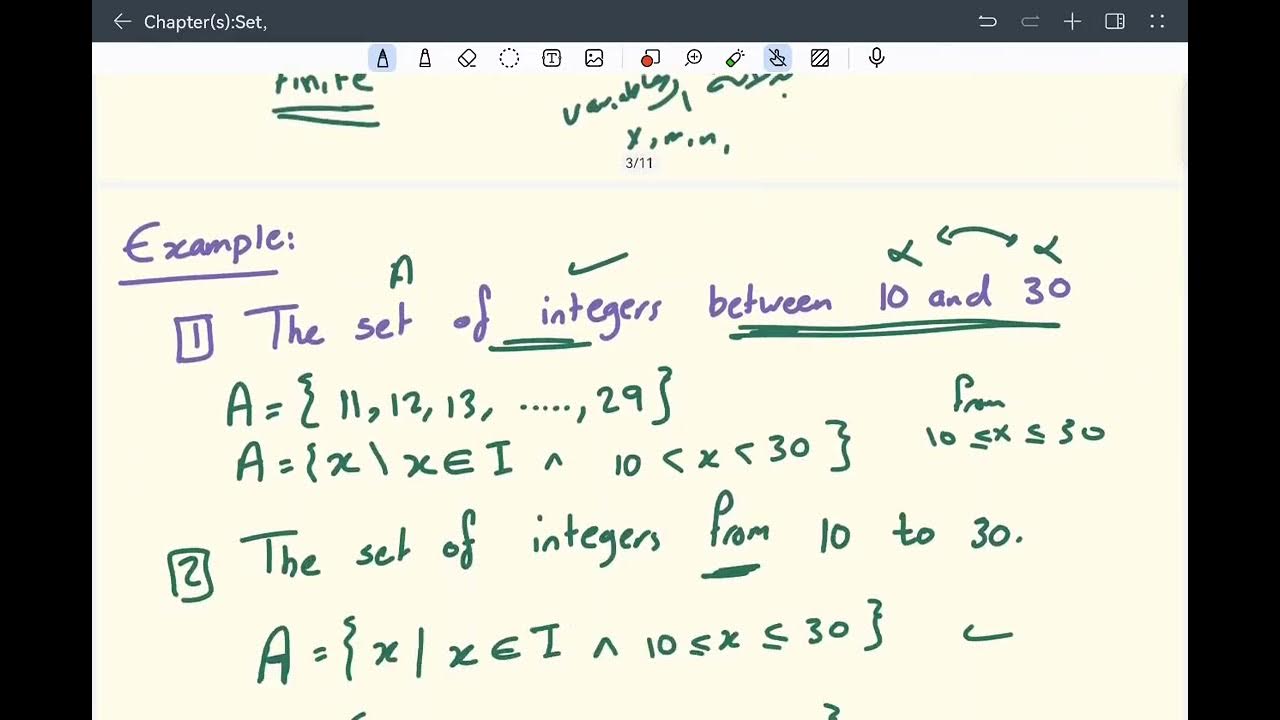 Chapter(s):Set,
finite
variables,
x, m, n,
3/11
Example:
A
α α
1 The set of integers between 10 and 30
A = { 11, 12, 13, ....., 29 }
from
10 ≤ x ≤ 30
A = { x \ x ∈ I ∧ 10 < x < 30 }
2 The set of integers from 10 to 30.
A = { x | x ∈ I ∧ 10 ≤ x ≤ 30 }